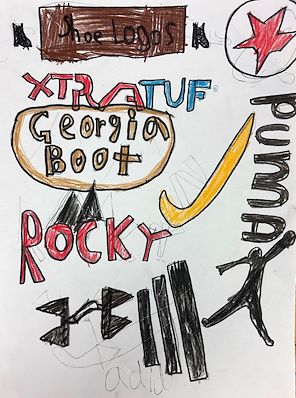 Shoe Logos
XTRATUF
Georgia
Boot
PUMA
ROCKY
adid